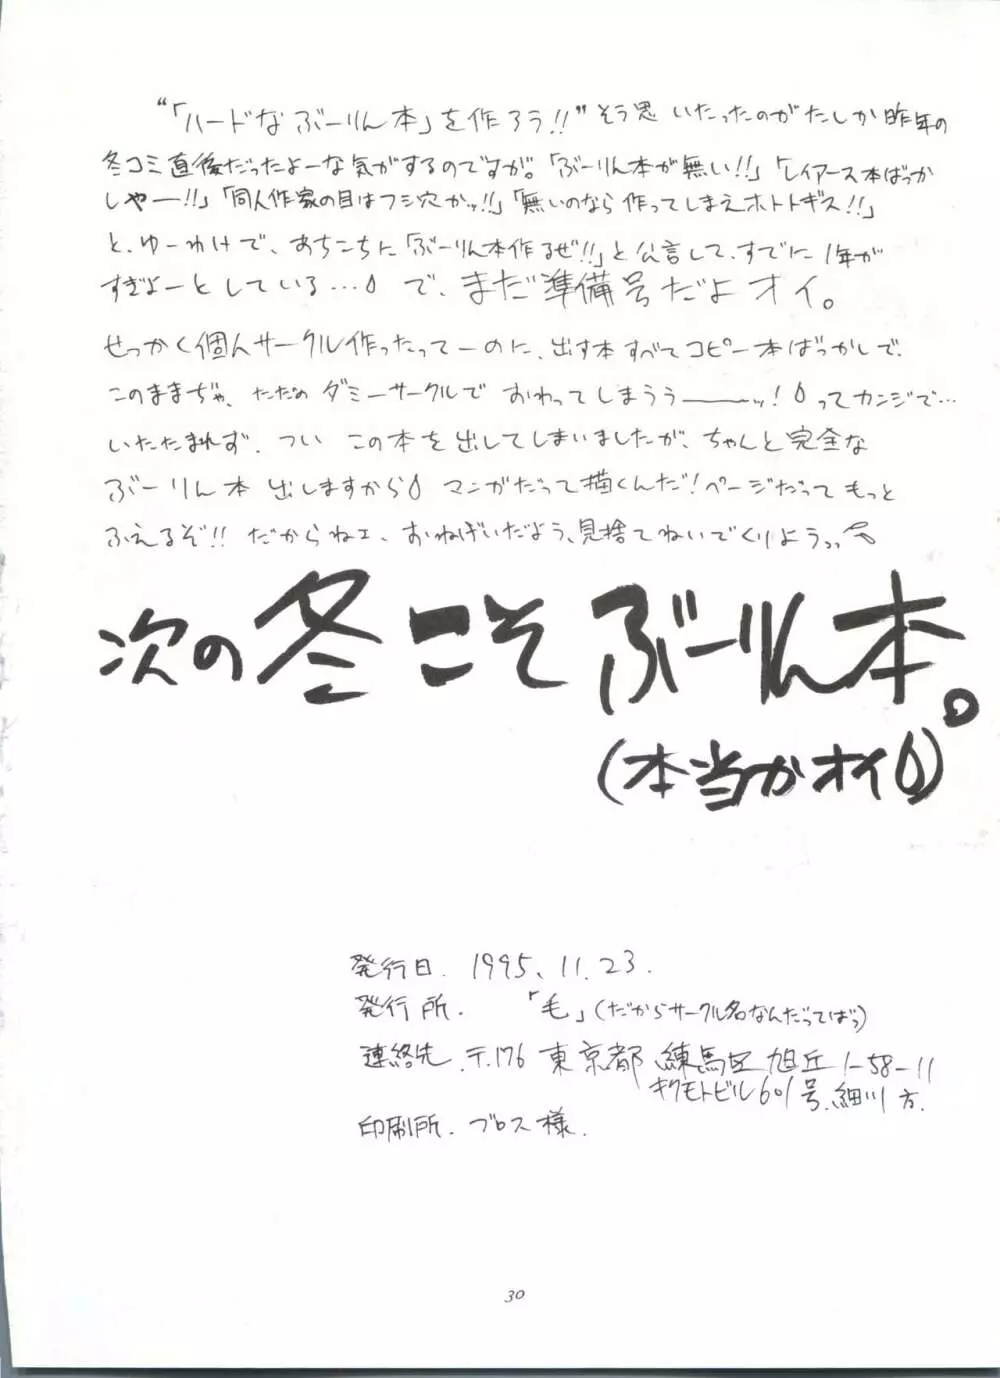 “「ハードなぶーりん本」を作ろう!!”そう思いたったのがたしか昨年の
冬コミ直後だったよーな気がするのですが。「ぶーりん本が無い!!」「レイアース本ばっか
しやー!!」「同人作家の目はフシ穴かッ!!」「無いのなら作ってしまえホトトギス!!」
と、ゆーわけで、あちこちに「ぶーりん本作るぜ!!」と公言して、すでに1年が
すぎよーとしている…で、まだ準備号だよオイ。
せっかく個人サークル作ったってーのに、出す本すべてコピー本ばっかしで、
このままぢゃ、ただのダミーサークルでおわってしまううーーッ!ってカンジで…
いたたまれず、ついこの本を出してしまいましたが、ちゃんと完全な
ぶーりん本出しますから マンガだって描くんだ!ページだってもっと
ふえるぞ!!だからねェ、おねげいだよう、見捨てねいでくりようっっ
次の冬こそぶーりん本。
(本当かオイ)
発行日. 1995. 11. 23.
発行所. 「毛」(だからサークル名なんだってばっ)
連絡先. 〒176 東京都練馬区旭丘1-58-11
キクモトビル601号.細川方.
印刷所. ブロス様.
30